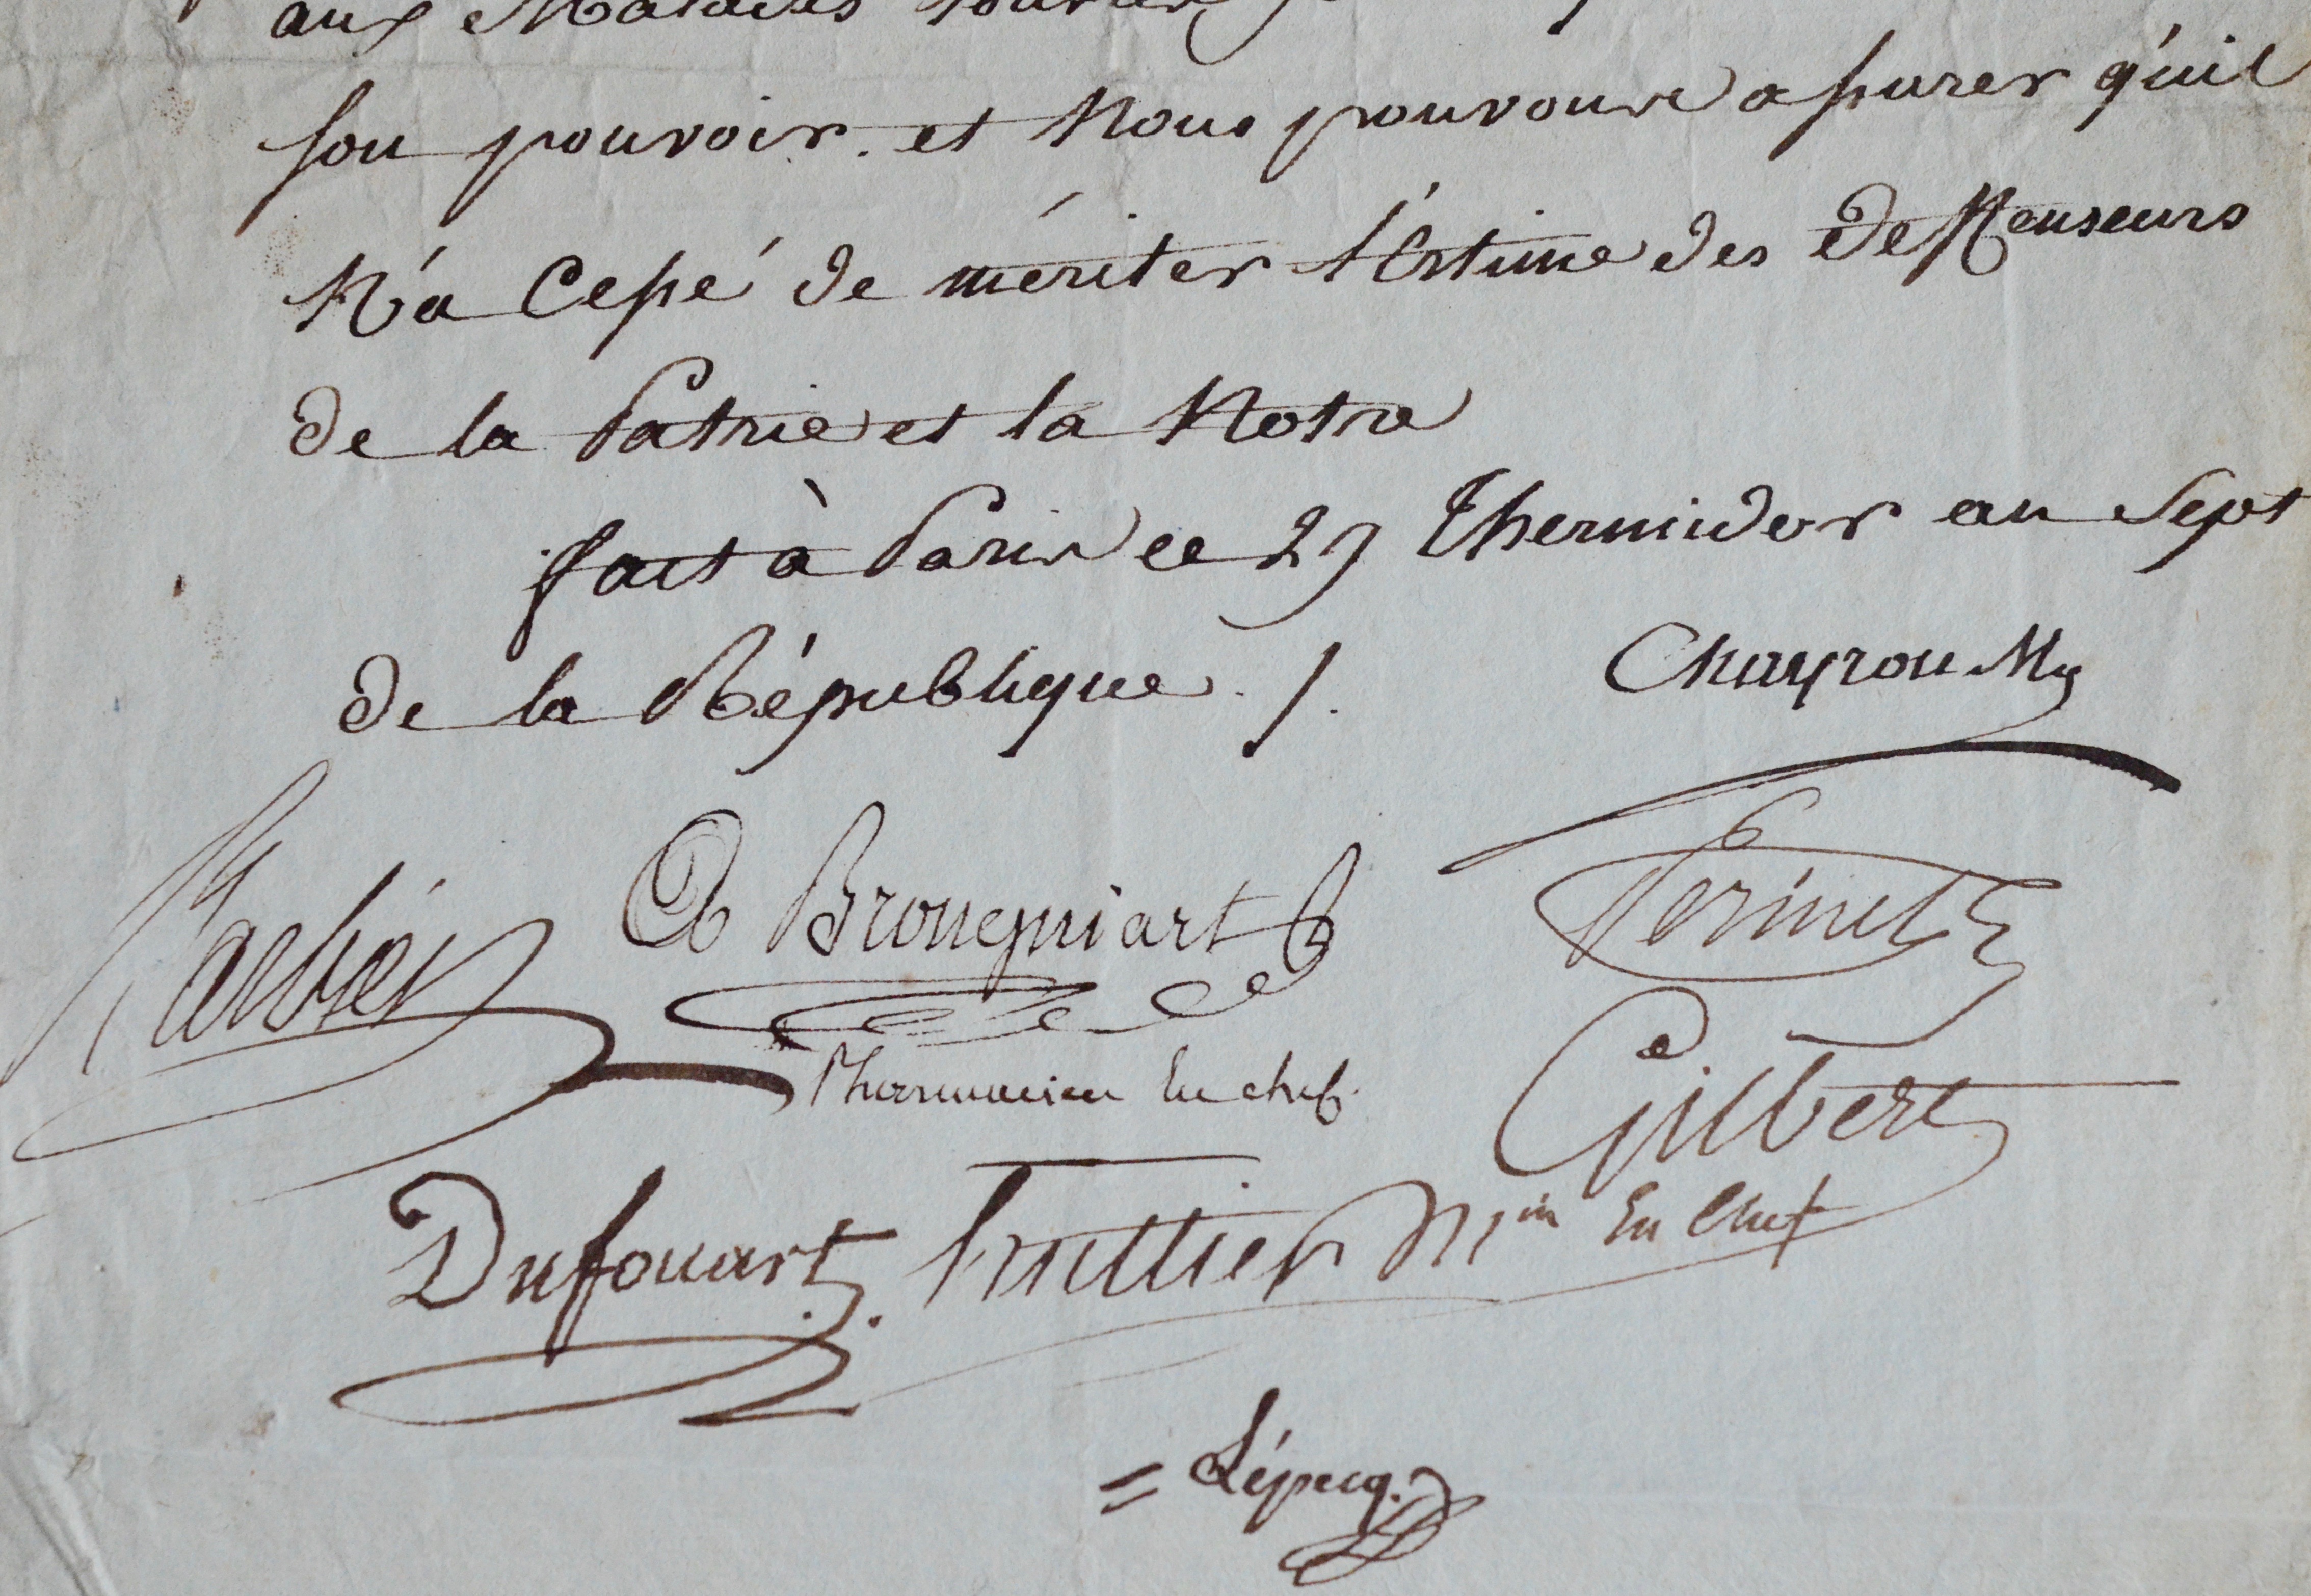 aux Malades
son pouvoir. et Nous pouvons assurer qu'il
N'a Cessé de mériter l'Estime des deffenseurs
de la Patrie et la Notre
fait à Paris ce 29 Thermidor an Sept
de la République ./.
Chayrou
Barbier
A Brongniart
Perinet
Pharmacien En chef
Gilbert
Dufouart
Truttier Min En Chef
= Lépecq.